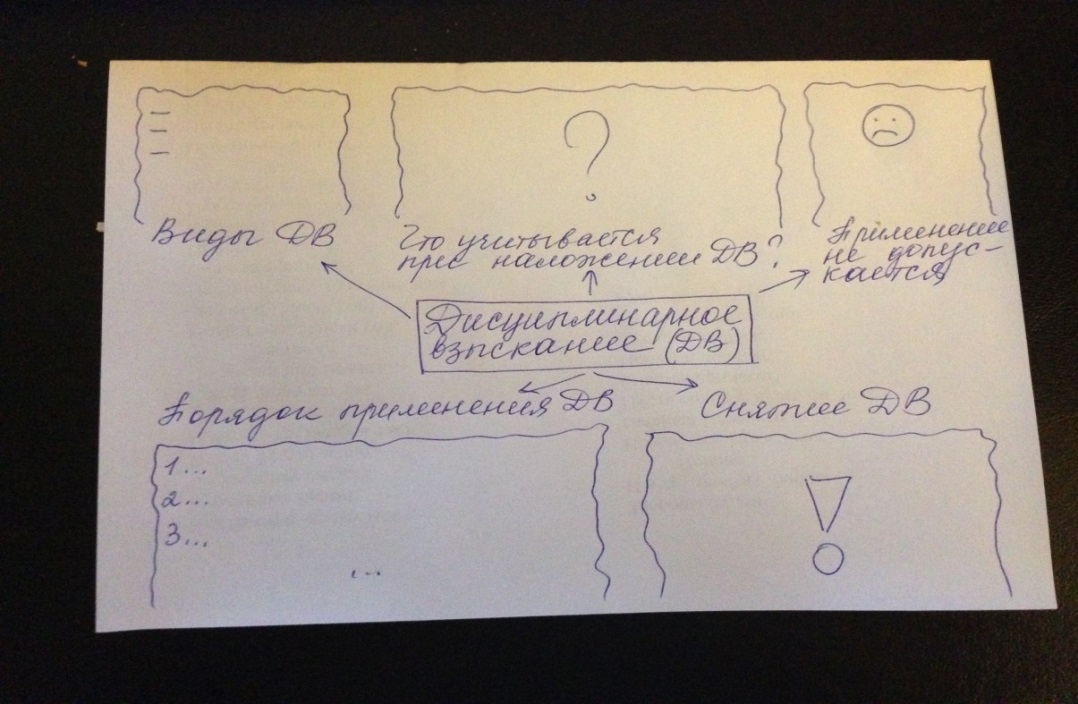 ?
Виды ДВ
Что учитывается
при наложении ДВ?
Применение
не допус-
кается
Дисциплинарное
взыскание (ДВ)
Порядок применения ДВ
1...
2...
3...
...
Снятие ДВ
!